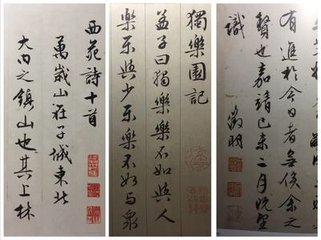 西苑詩十首
萬歲山在子城東北
大内之鎮山也其上林
獨樂園記
孟子曰獨樂樂不如與人
樂樂與少樂樂不如與衆
有進於今日者無俟余之
贅也嘉靖己未二月既望
識 徵明